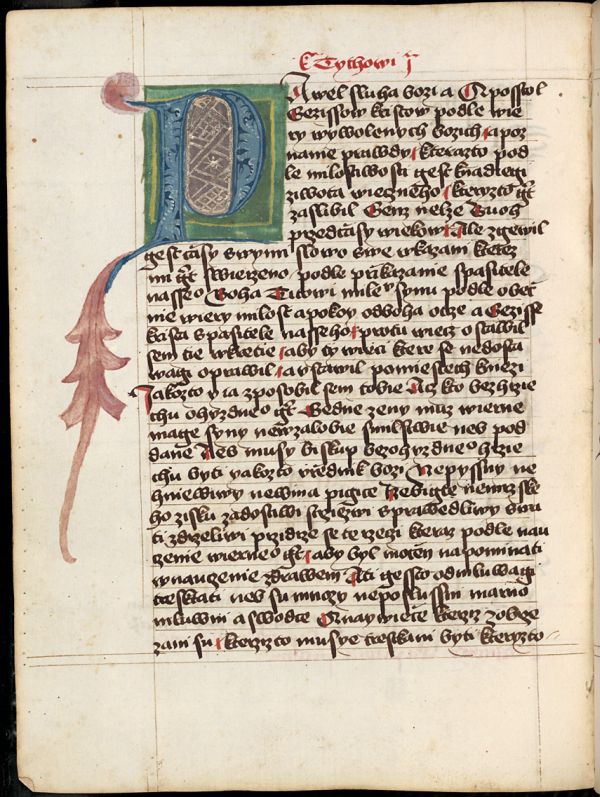 Tythowi j
Pawel sluha bozi a Apostol
Gezissow kristow podle wie
ry wywolenych bozich a poz
nanie prawdy kterazto pod
le milostiwosti gest k nadiegi
ziwota wiecneho kteryzto gt
zaslibil Genz nelze Buoh
przed czasy wiekow Ale zgewil
gest czasy swymi slowo swe w kazani kterez
mi gt swierzeno podle przikazanie spasitele
nasseo Boha Titowi milemu synu podle obec
nie wiery milost a pokoy od boha otcze a Gezisse
krista spasitele nasseho protu wiecz ostawil
sem tie w kretie aby ty wieci ktere se nedosta
wagi oprawil a ustawil po miestech kniezi
Jakozto y ia zposobil sem tobie Ac kto bez hrzie
chu ohyzdneo gt Gedne zeny muz wierne
mage syny ne w zalobie smilstwie neb pod
dane Neb musy biskup bez ohyzdneo hrzie
chu byti yakozto urzednik bozi Ne pyssny ne
hniewiwy ne wina pigice Ne bigite ne mrzke
ho zisku zadostiwi strziezwi sprawedliwy swa
ti zdrzeliwi przidrze se te rzeczi kteraz podle nau
czenie wierneo gt aby byl mocen napominati
w nauczenie zdrawem A ti gessto odmluwagi
treskati neb su mnozy neposlussni marno
mluwni a swodce A naywiece kteriz z obrze
zani su kterizto musye treskani byti kteryzto